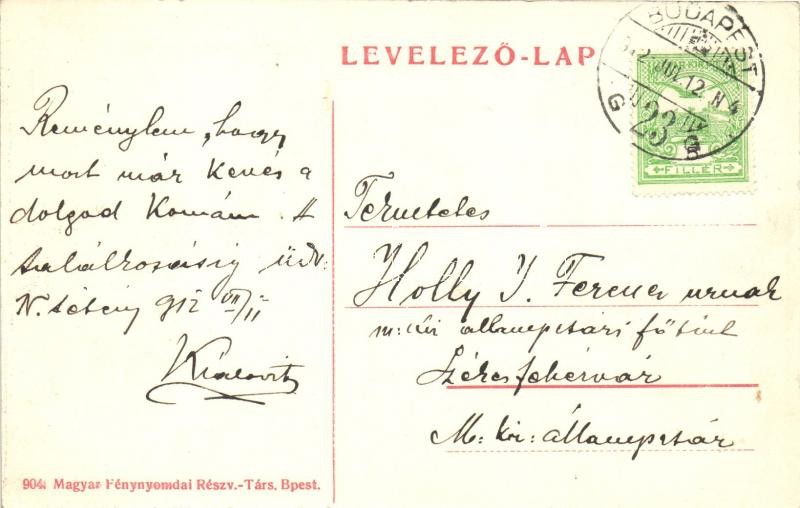 LEVELEZŐ-LAP
BUDAPEST
912 JUL. 12. N 4
23
FILLÉR
Reménylem, hogy
most már kevés a
dolgod Komám. A
találkozásig üdv:
N. tétény 912 VII/11
Tekintetes
Holly J. Ferencz urnak
m: kir állampztári főtiszt
Székesfehérvár
M: kir: állampztár
904. Magyar Fénynyomdai Részv.-Társ. Bpest.